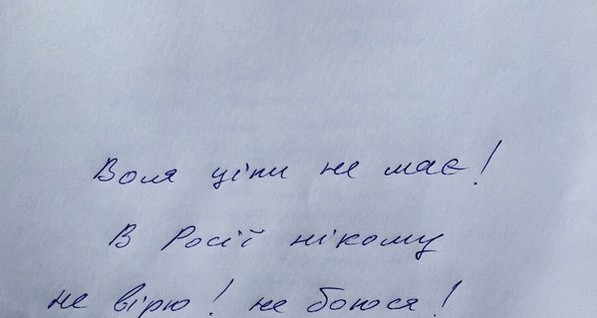 Воля ціни не має!
В Росії нікому
не вірю! не боюся!